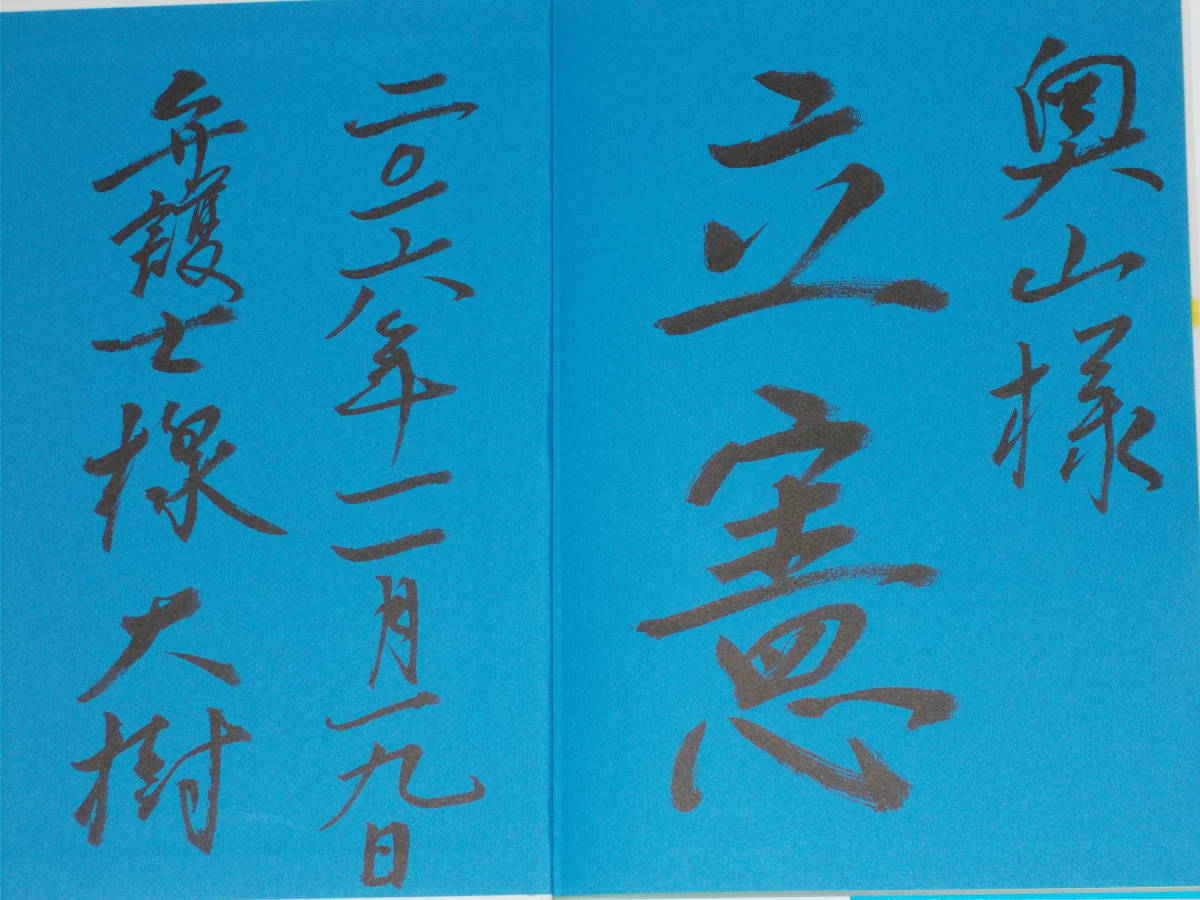 奥山様
立憲
二〇一六年一一月一九日
弁護士楾大樹